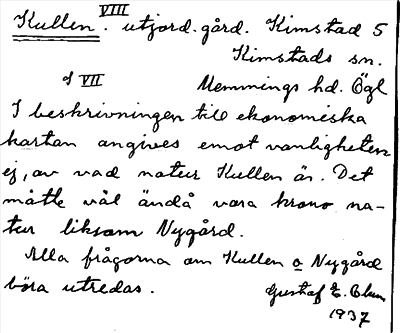 Kullen. VIII utjord. gård. Kimstad 5
Kimstads sn.
J VII Memmings hd. Ögl
I beskrivningen till ekonomiska
kartan angives emot vanligheten
ej, av vad natur Kullen är. Det
måtte väl ändå vara krono na-
tur liksom Nygård.
Alla frågorna om Kullen o Nygård
böra utredas. Gustaf E. Blum
1937